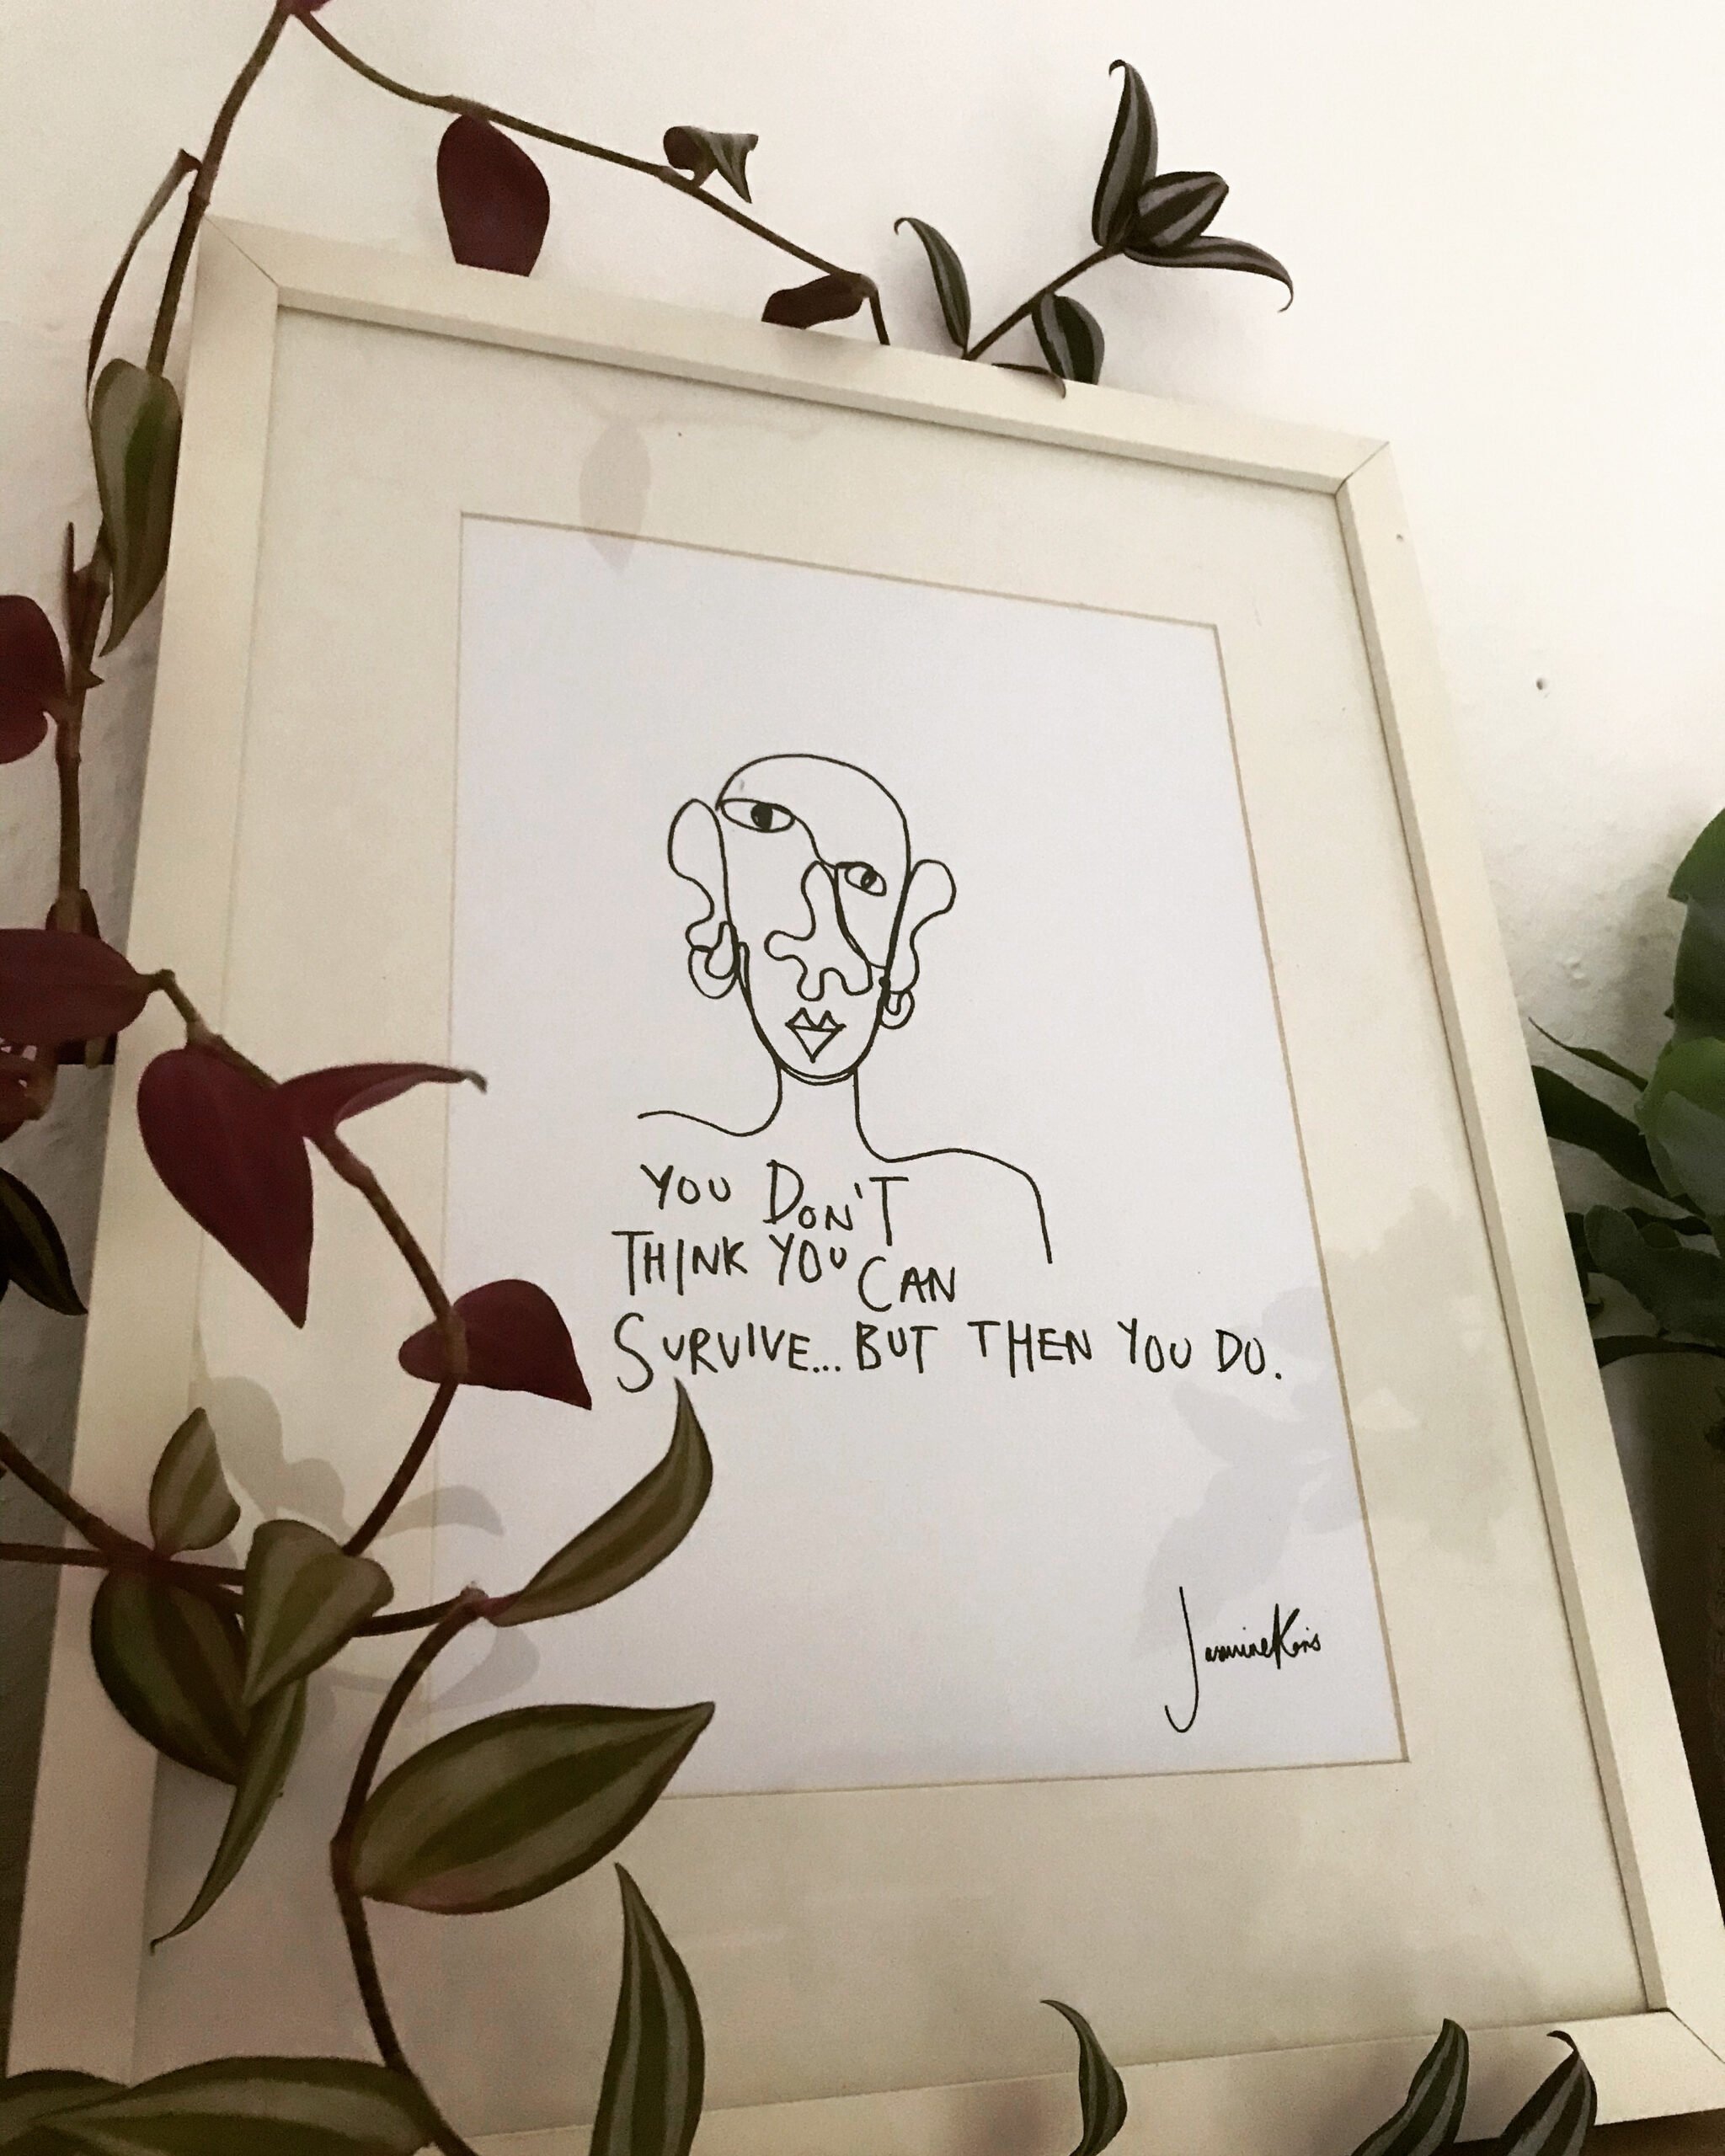 YOU DON'T
THINK YOU CAN
SURVIVE... BUT THEN YOU DO.
Jasmine Koris